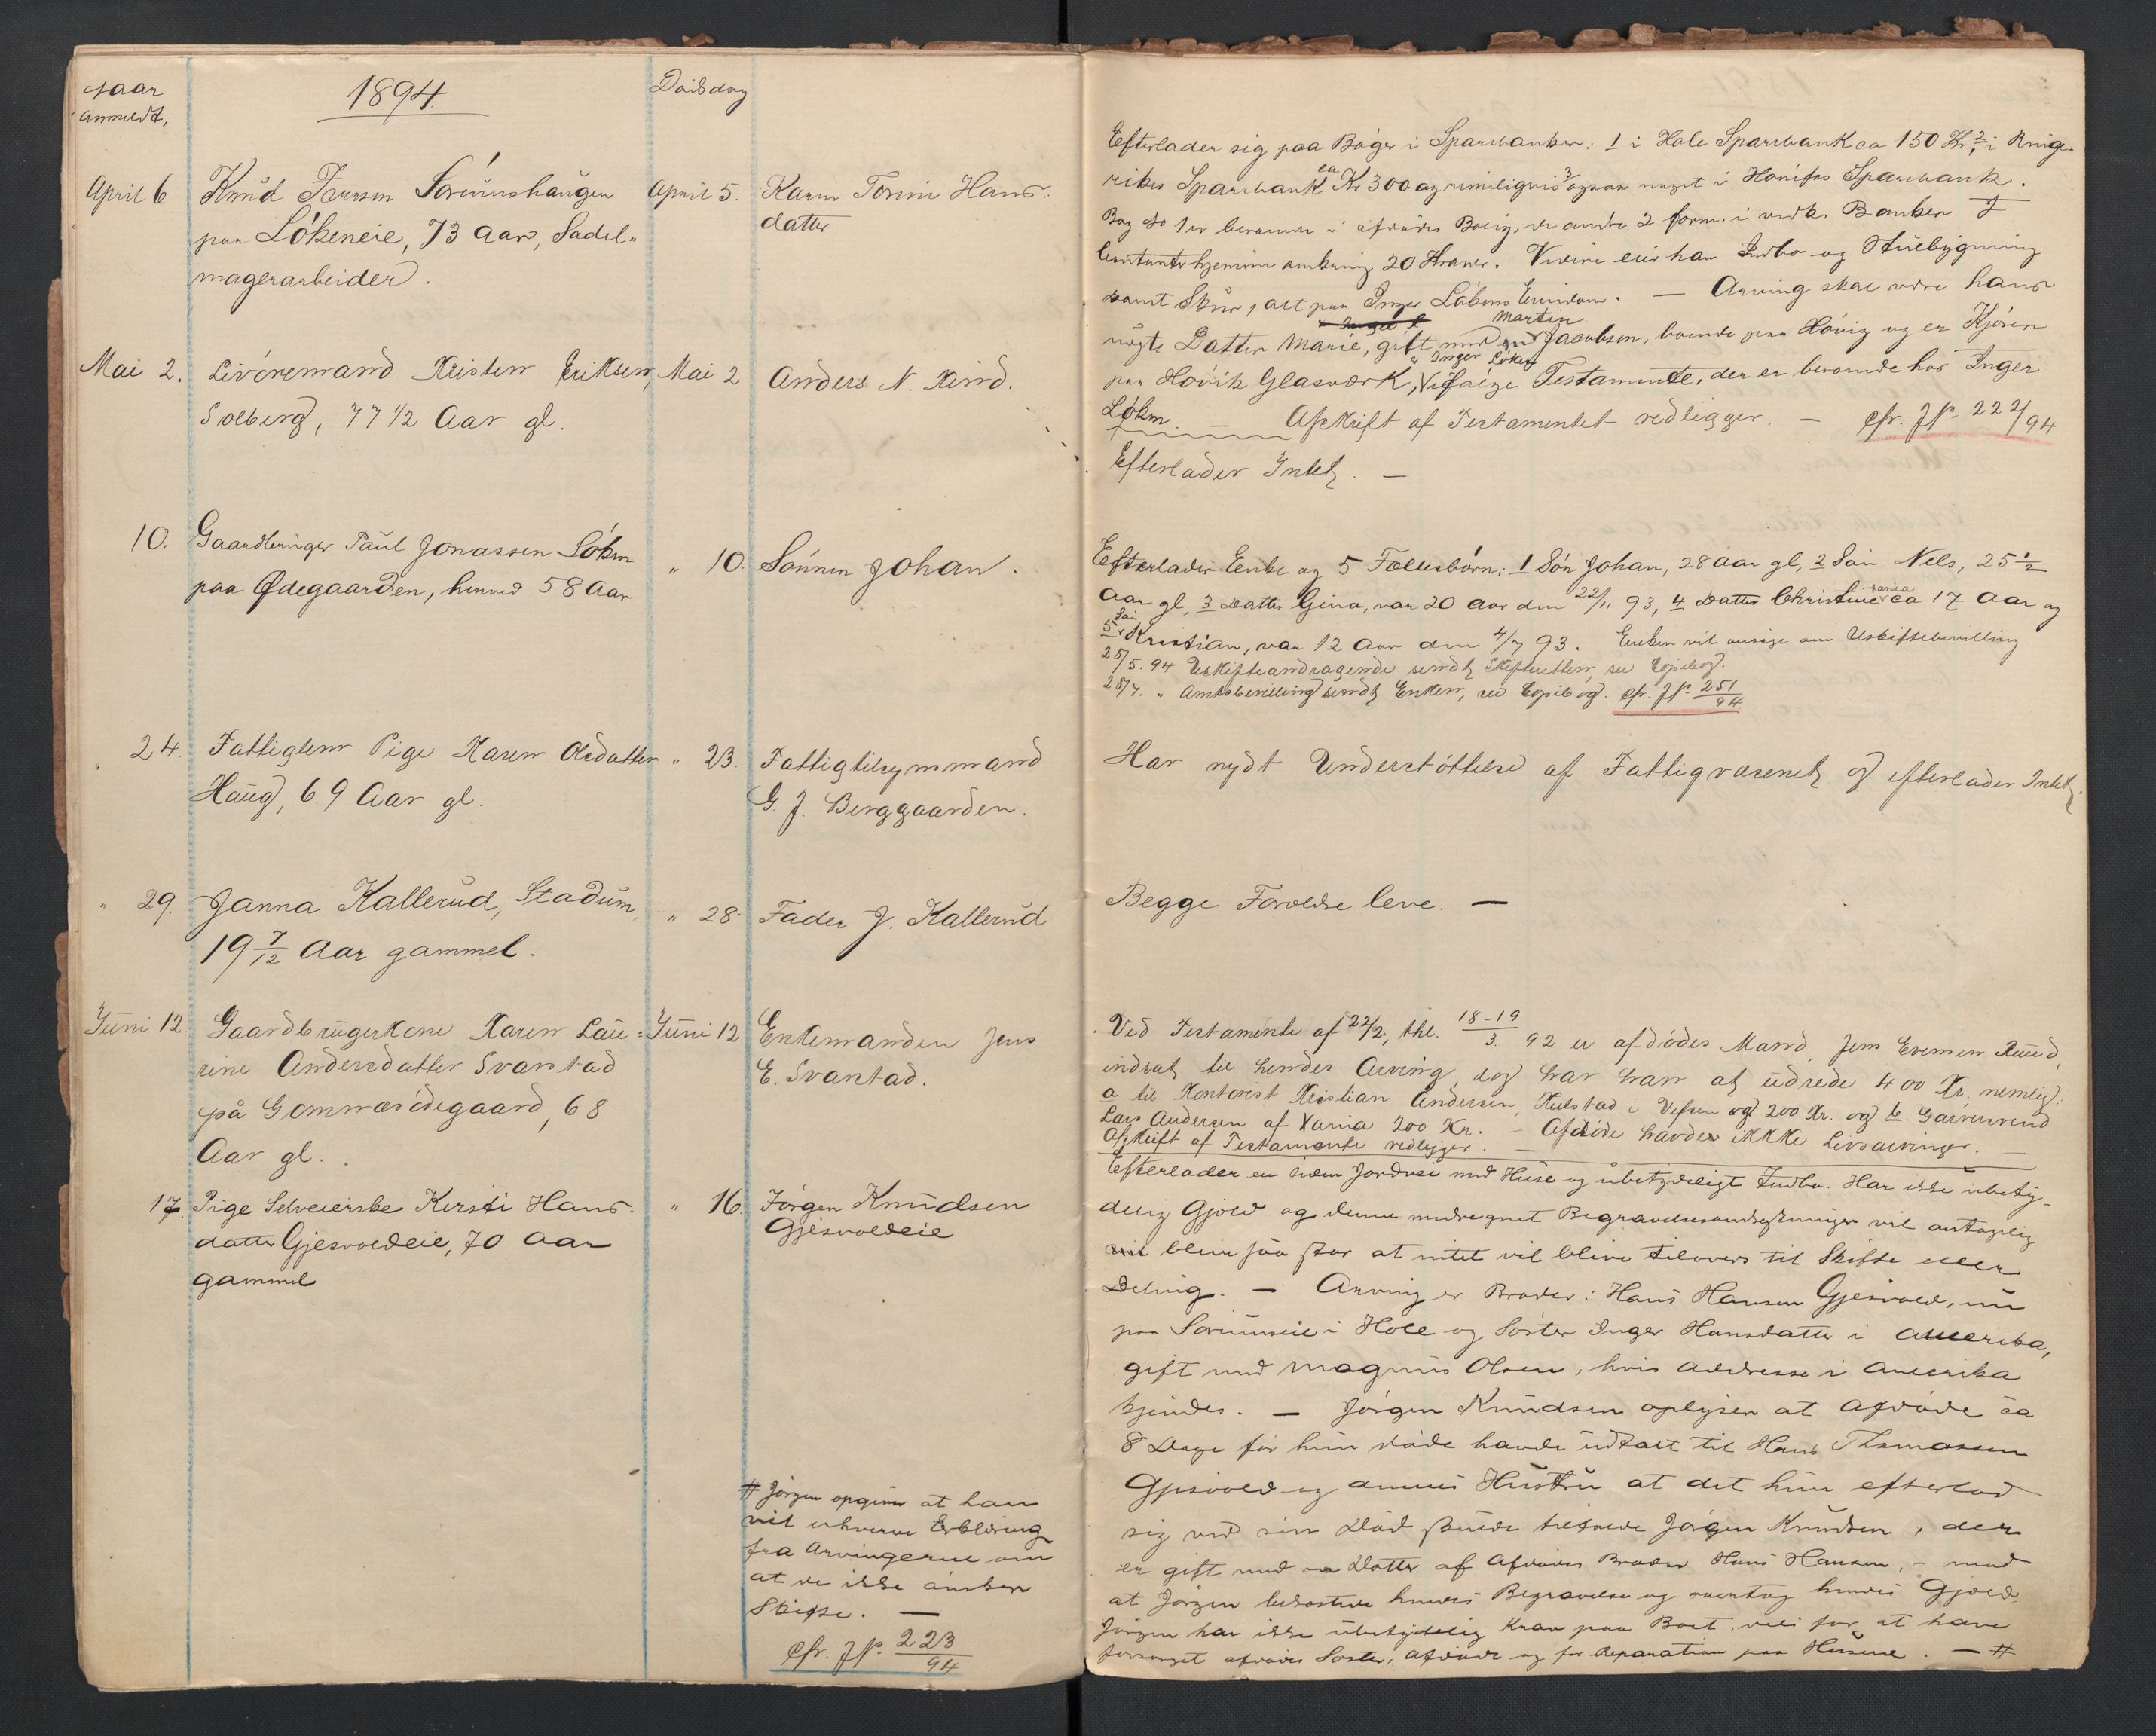 naar
anmeldt,
1894
Dødsdag
April 6
Knud Iversen Sørumshaugen
paa Løkeneie, 73 Aar, Sadel-
magerarbeider.
April 5.
Karen Tonine Hans-
datter
Mai 2.
Livøremand Kristen Eriksen
Solberg, 77 1/2 Aar gl.
Mai 2
Anders N. Rud.
10.
Gaardbruger Paul Jonassen Løken
paa Ødegaarden, henved 58 Aar
" 10.
Sønnen Johan.
" 24.
Fattiglem Pige Karen Olsdatter
Haug, 69 Aar gl.
" 23.
Fattigtilsynsmand
G. J. Berggaarden.
" 29.
Janna Kallerud, Stadum,
19 7/12 Aar gammel.
" 28.
Fader J. Kallerud
Juni 12.
Gaardbrugerkone Karen Lau-
rine Andersdatter Svarstad
på Gomnæsødegaard, 68
Aar gl.
Juni 12
Enkemanden Jens
E. Svarstad.
17.
Pige Selveierske Kirsti Hans-
datter Gjesvoldeie, 70 Aar
gammel
" 16.
Jørgen Knudsen
Gjesvoldeie
# Jørgen opgiver at han
vil erhverve Erklæring
fra Arvingerne om
at de ikke ønsker
Skifte. —
cfr. Jr. 223/94
Efterlader sig paa Bøger i Sparebanker: 1 i Hole Sparebank ca 150 Kr, 2 i Ringe-
rikes Sparebank ca Kr 300 og rimeligvis 3 ogsaa noget i Hønefos Sparebank.
Bog No 1 er beroende i afdødes Bolig, de andre 2 form. i vedk. Banker I
kontanter hjemme omkring 20 Kroner. Videre eier han Indbo og Stuebygning
samt Skur, alt paa Inger Løkens Eiendom. — Arving skal være hans
uægte Datter Marie, gift med Martin Jacobsen, boende paa Høvig og er Kjører
paa Høvik Glasværk, & Inger Løken ifølge Testamente, der er beroende hos Inger
Løken. — Afskrift af Testamentet vedligger. — cfr. Jr. 222/94
Efterlader Intet. —
Efterlader Enke og 5 Fællesbørn: 1 Søn Johan, 28 Aar gl, 2 Søn Nels, 25 1/2
Aar gl, 3 Datter Gina, var 20 Aar den 22/11 93, 4 Datter Christiania ca 17 Aar og
5 Søn Kristian, var 12 Aar den 4/7 93. Enken vil ansøge om Uskiftebevilling
25/5. 94 Uskifteandragende sendt Skifteretten, se Kopibog.
28/7. " Amtsbevilling sendt Enken, se Kopibog. cfr. Jr. 251/94
Har nydt Understøttelse af Fattigvæsenet og efterlader Intet.
Begge Forældre leve. —
Ved Testamente af 22/2, thl. 18-19/3. 92 er afdødes Mand, Jens Evensen Ruud,
indsat til hendes Arving, dog har han at udrede 400 Kr. nemlig:
a til Kontorist Kristian Andersen, Kulstad i Vefsen 200 Kr. og b Garversvend
Lars Andersen af Xania 200 Kr. — Afdøde havde ikke Livsarvinger. —
Afskrift af Testamente vedligger. —
Efterlader en liden Jordvei med Huse og ubetydeligt Indbo. Har ikke ubety-
delig Gjæld og denne medregnet Begravelsesomkostninger vil antagelig
blive saa stor at intet vil blive tilovers til Skifte eller
Deling. — Arving er Broder: Hans Hansen Gjesvold, nu
paa Sørumseie i Hole og Søster Inger Hansdatter i Amerika,
gift med Magnus Olsen, hvis Addresse i Amerika
kjendes. — Jørgen Knudsen oplyser at Afdøde ca
8 Dage før hun døde havde udtalt til Hans Thomassen
Gjesvold og dennes Hustru at det hun efterlod
sig ved sin Død skulde tilfalde Jørgen Knudsen, der
er gift med en Datter af Afdødes Broder Hans Hansen, — mod
at Jørgen bekostede hendes Begravelse og overtog hendes Gjæld.
Jørgen har ikke ubetydelig Krav paa Boet, dels for at have
forsørget afdødes Søster, Afdøde og for Reparation paa Husene. — #